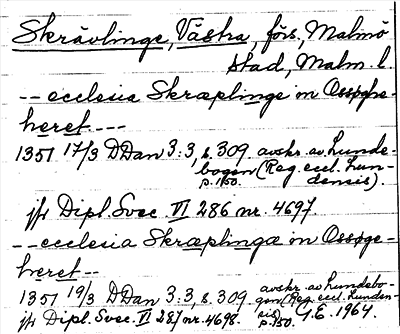 Skrävlinge, Västra, förs., Malmö
stad, Malm. l.
-- ecclesia Skræplinge in Ossøghe-
heret ---
1351 17/3 DDan 3:3, s. 309. avskr. av Lunde-
bogen (Reg. eccl. Lun-
p. 150. densis).
jfr Dipl. Svec. VI 286 nr. 4697.
-- ecclesia Skræplinga in Ossøge-
heret --
1351 19/3 DDan 3:3, s. 309 avskr. av Lundebo-
gen (Reg. eccl. Lunden-
jfr Dipl. Svec. VI 287 nr. 4698. sis) p. 150. G.E. 1964.